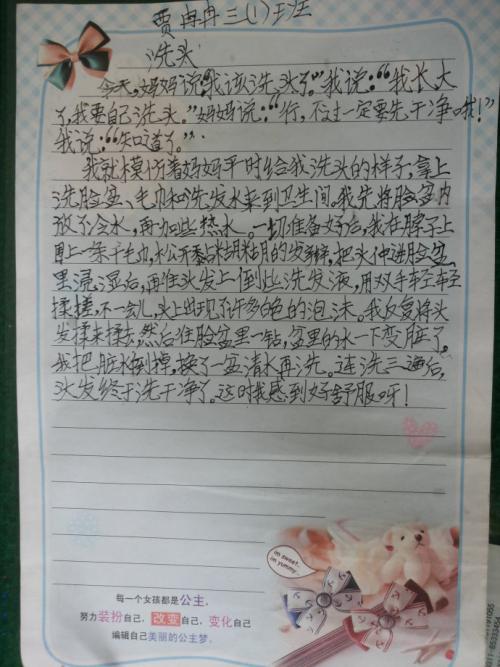 贾冉冉三(1)班
洗头
今天,妈妈说我该洗头了。我说:“我长大
了,我要自己洗头。”妈妈说:“行,不过一定要洗干净哦!”
我说:“知道了。”
我就模仿着妈妈平时给我洗头的样子,拿上
洗脸盆、毛巾和洗发水来到卫生间。我先将脸盆内
放了冷水,再加些热水。一切准备好后,我在脖子上
围上一条干毛巾,松开黏糊糊的发辫,把头伸进脸盆
里浸湿后,再往头发上倒些洗发液,用双手轻轻
揉搓,不一会儿,头上出现了许多白色的泡沫。我反复将头
发揉来揉去,然后往脸盆里一钻,盆里的水一下变脏了。
我把脏水倒掉,换了一盆清水再洗。连洗三遍后,
头发终于洗干净了。这时我感到好舒服呀!
im sweet.
im yummy.
每一个女孩都是公主,
努力装扮自己,改变自己,变化自己
编辑自己美丽的公主梦。